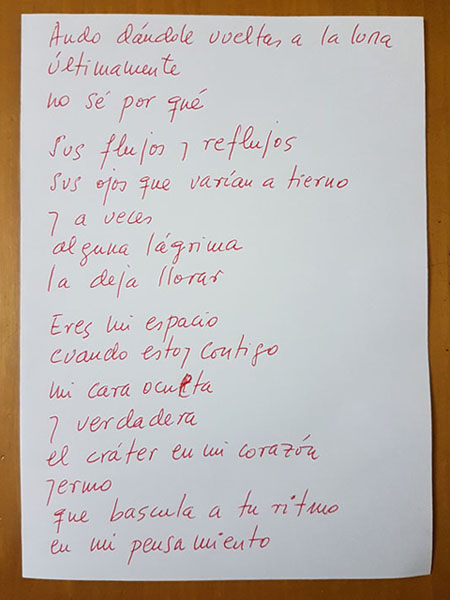 Ando dándole vueltas a la luna
últimamente
no sé por qué
Sus flujos y reflujos
Sus ojos que varían a tierno
y a veces
alguna lágrima
la deja llorar
Eres mi espacio
cuando estoy contigo
mi cara oculta
y verdadera
el cráter en mi corazón
yermo
que bascula a tu ritmo
en mi pensamiento